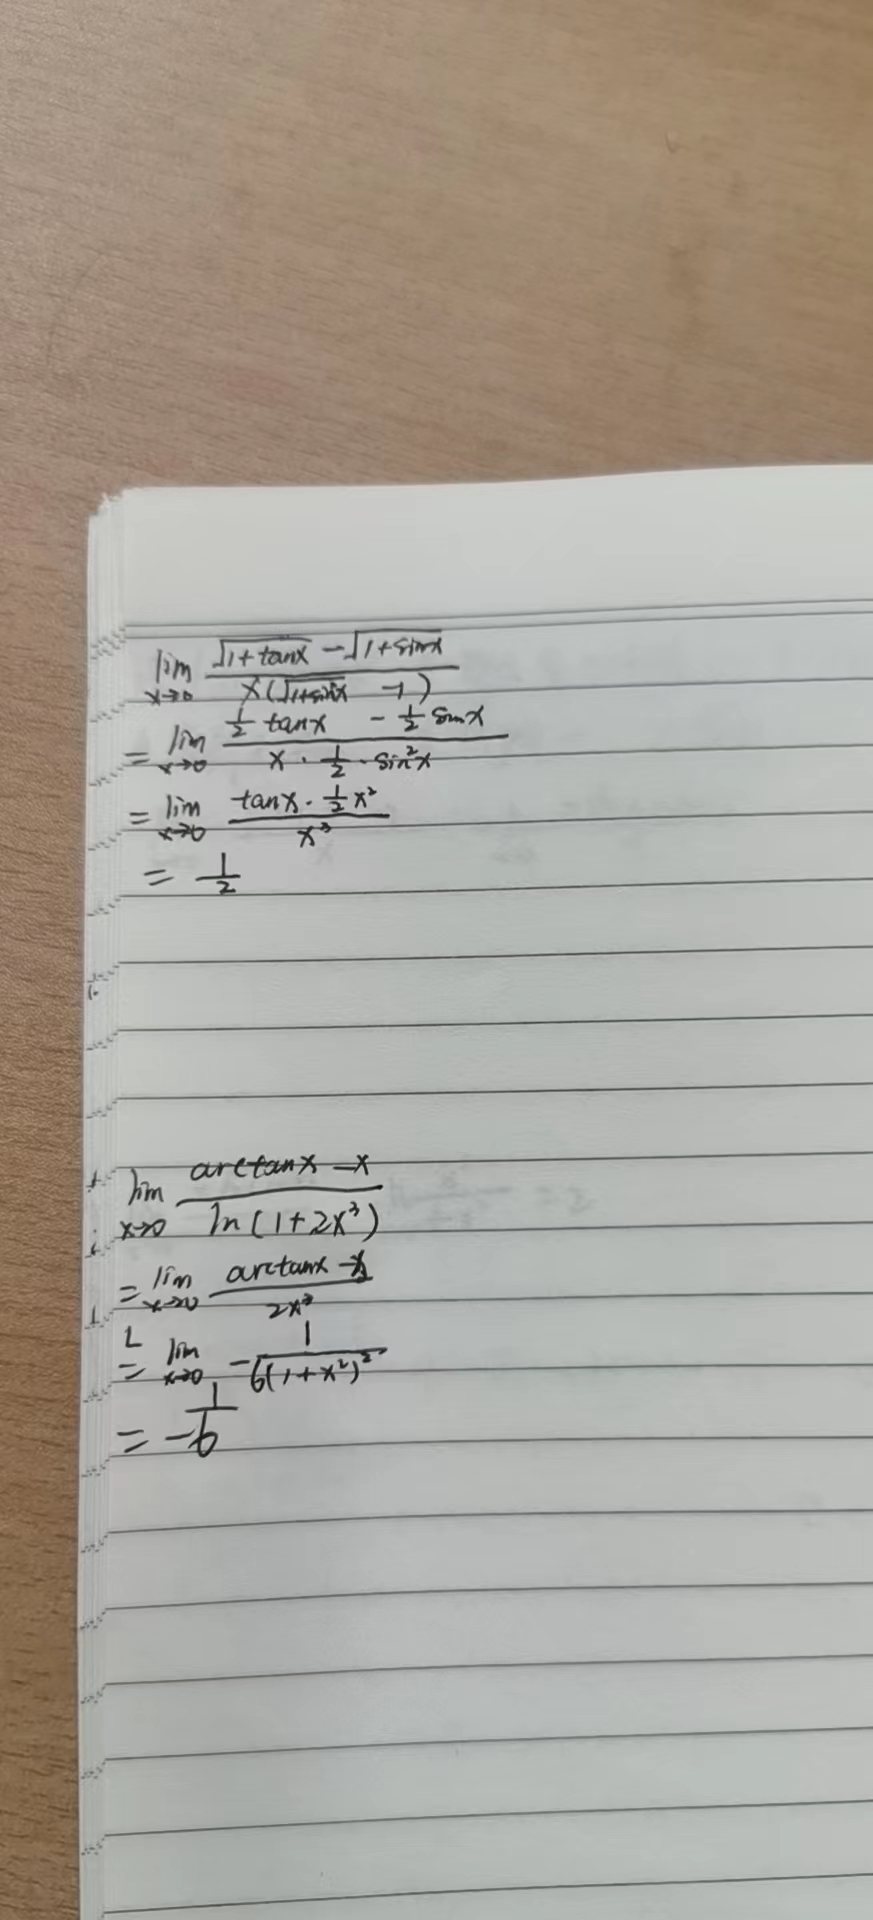 lim x→0 (√(1+tanx) - √(1+sinx)) / (x(√(1+sin²x) -1))
= lim x→0 (½ tanx - ½ sinx) / (x · ½ · sin²x)
= lim x→0 (tanx · ½x²) / x³
= 1/2
lim x→0 (arctanx - x) / ln(1+2x³)
= lim x→0 (arctanx - x) / 2x³
L= lim x→0 - 1/(6(1+x²)²)
= - 1/6